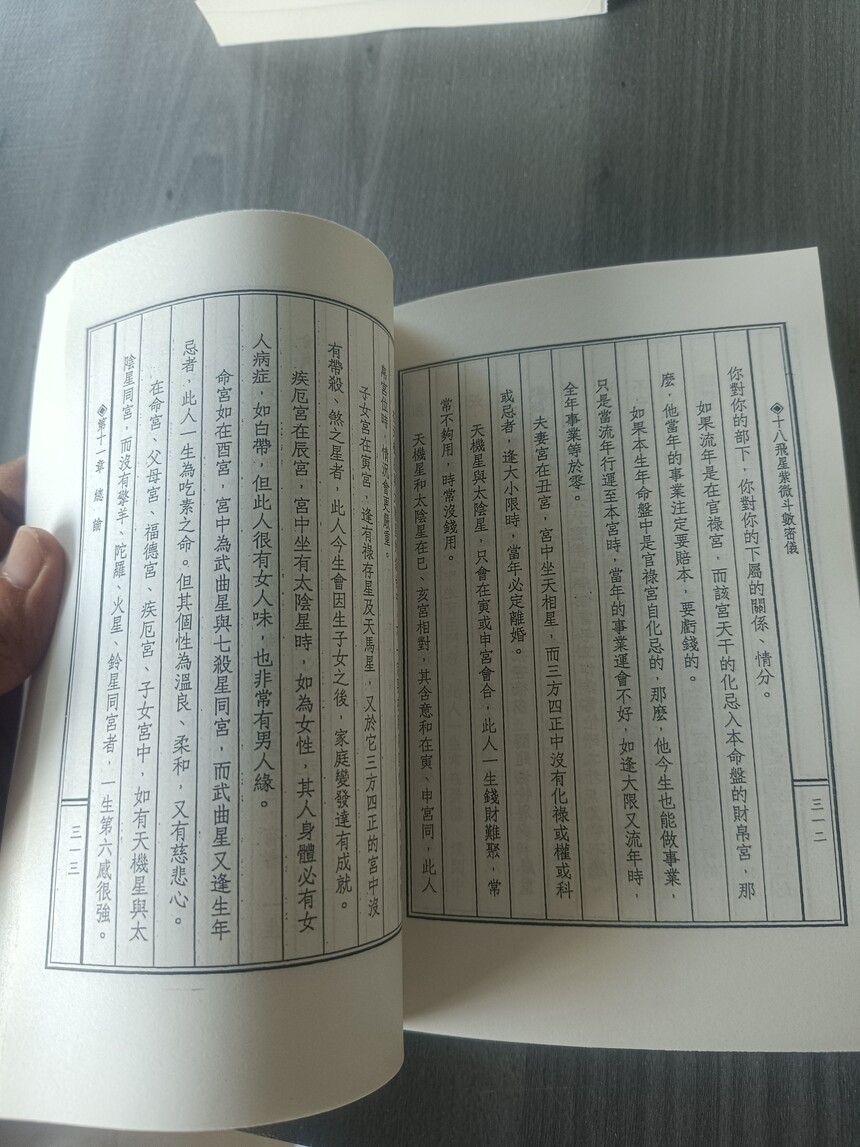 ◈十八飛星紫微斗數密儀
三一二
你對你的部下，你對你的下屬的關係、情分。
如果流年是在官祿宮，而該宮天干的化忌入本命盤的財帛宮，那
麼，他當年的事業注定要賠本，要虧錢的。
如果本生年命盤中是官祿宮自化忌的，那麼，他今生也能做事業，
只是當流年行運至本宮時，當年的事業運會不好，如逢大限又流年時，
全年事業等於零。
夫妻宮在丑宮，宮中坐天相星，而三方四正中沒有化祿或權或科
或忌者，逢大小限時，當年必定離婚。
天機星與太陰星，只會在寅或申宮會合，此人一生錢財難聚，常
常不夠用，時常沒錢用。
天機星和太陰星在巳、亥宮相對，其含意和在寅、申宮同，此人
帛宮位時，情況會更嚴重。
子女宮在寅宮，逢有祿存星及天馬星，又於它三方四正的宮中沒
有帶殺、煞之星者，此人今生會因生子女之後，家庭變發達有成就。
疾厄宮在辰宮，宮中坐有太陰星時，如為女性，其人身體必有女
人病症，如白帶，但此人很有女人味，也非常有男人緣。
命宮如在酉宮，宮中為武曲星與七殺星同宮，而武曲星又逢生年
忌者，此人一生為吃素之命。但其個性為溫良、柔和，又有慈悲心。
在命宮、父母宮、福德宮、疾厄宮、子女宮中，如有天機星與太
陰星同宮，而沒有擎羊、陀羅、火星、鈴星同宮者，一生第六感很強。
◈第十一章 總論
三一三